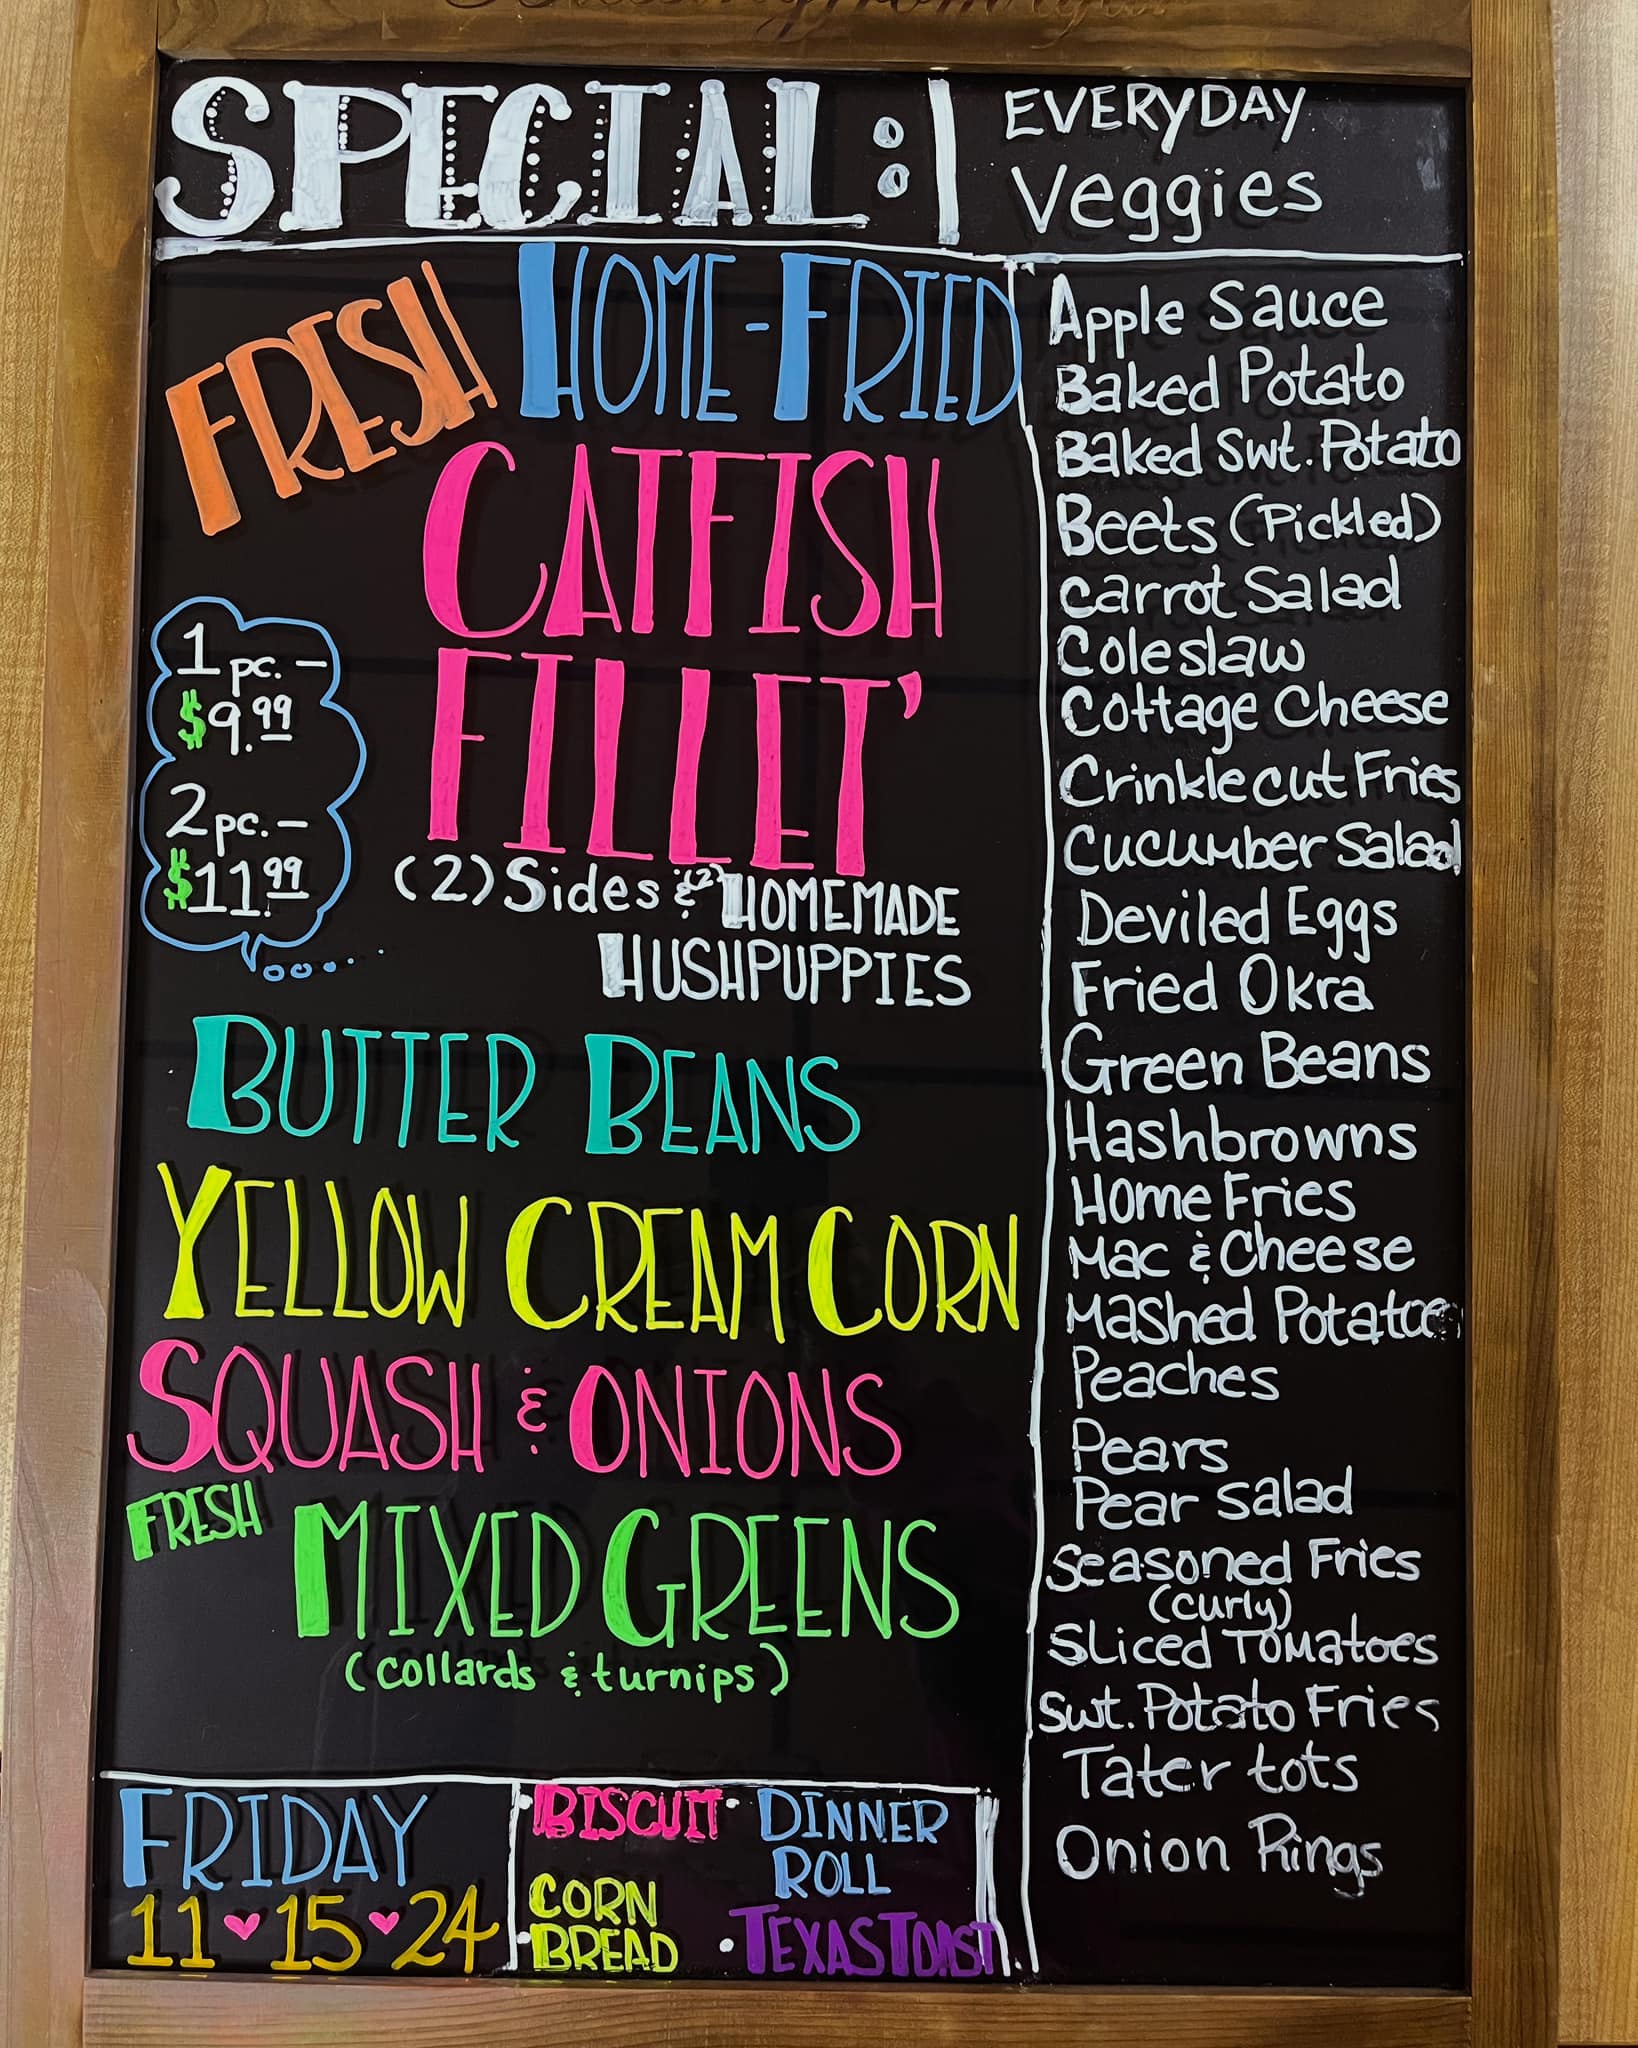 SPECIAL:
FRESH HOME-FRIED
CATFISH
FILLET'
1 pc. –
$9.99
2 pc. –
$11.99
(2) Sides & (2) HOMEMADE
HUSHPUPPIES
BUTTER BEANS
YELLOW CREAM CORN
SQUASH & ONIONS
FRESH MIXED GREENS
(collards & turnips)
FRIDAY
11 ♥ 15 ♥ 24
BISCUIT
CORN
BREAD
DINNER
ROLL
TEXAS TOAST
EVERYDAY
Veggies
Apple Sauce
Baked Potato
Baked Swt. Potato
Beets (Pickled)
Carrot Salad
Coleslaw
Cottage Cheese
Crinklecut Fries
Cucumber Salad
Deviled Eggs
Fried Okra
Green Beans
Hashbrowns
Home Fries
Mac & Cheese
Mashed Potatoe
Peaches
Pears
Pear Salad
Seasoned Fries
(curly)
Sliced Tomatoes
Swt. Potato Fries
Tater tots
Onion Rings